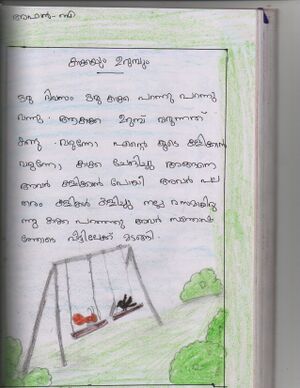 അഫ്നാൻ-സി
കാക്കയും ഉറുമ്പും
ഒരു ദിവസം ഒരു കാക്ക പറന്നു പറന്നു
വന്നു. ആകാക്ക ഉറുമ്പ് വരുന്നത്
കണ്ടു. വരുന്നോ, എന്റെ കൂടെ കളിക്കാൻ
വരുന്നോ, കാക്ക ചോദിച്ചു അങ്ങനെ
അവർ കളിക്കാൻ പോയി അവർ പല
തരം കളികൾ കളിച്ചു നല്ല രസമായിരു
ന്നു കാക്ക പറഞ്ഞു അവർ സന്തോഷ
ത്തോടെ വീട്ടിലേക്ക് മടങ്ങി.